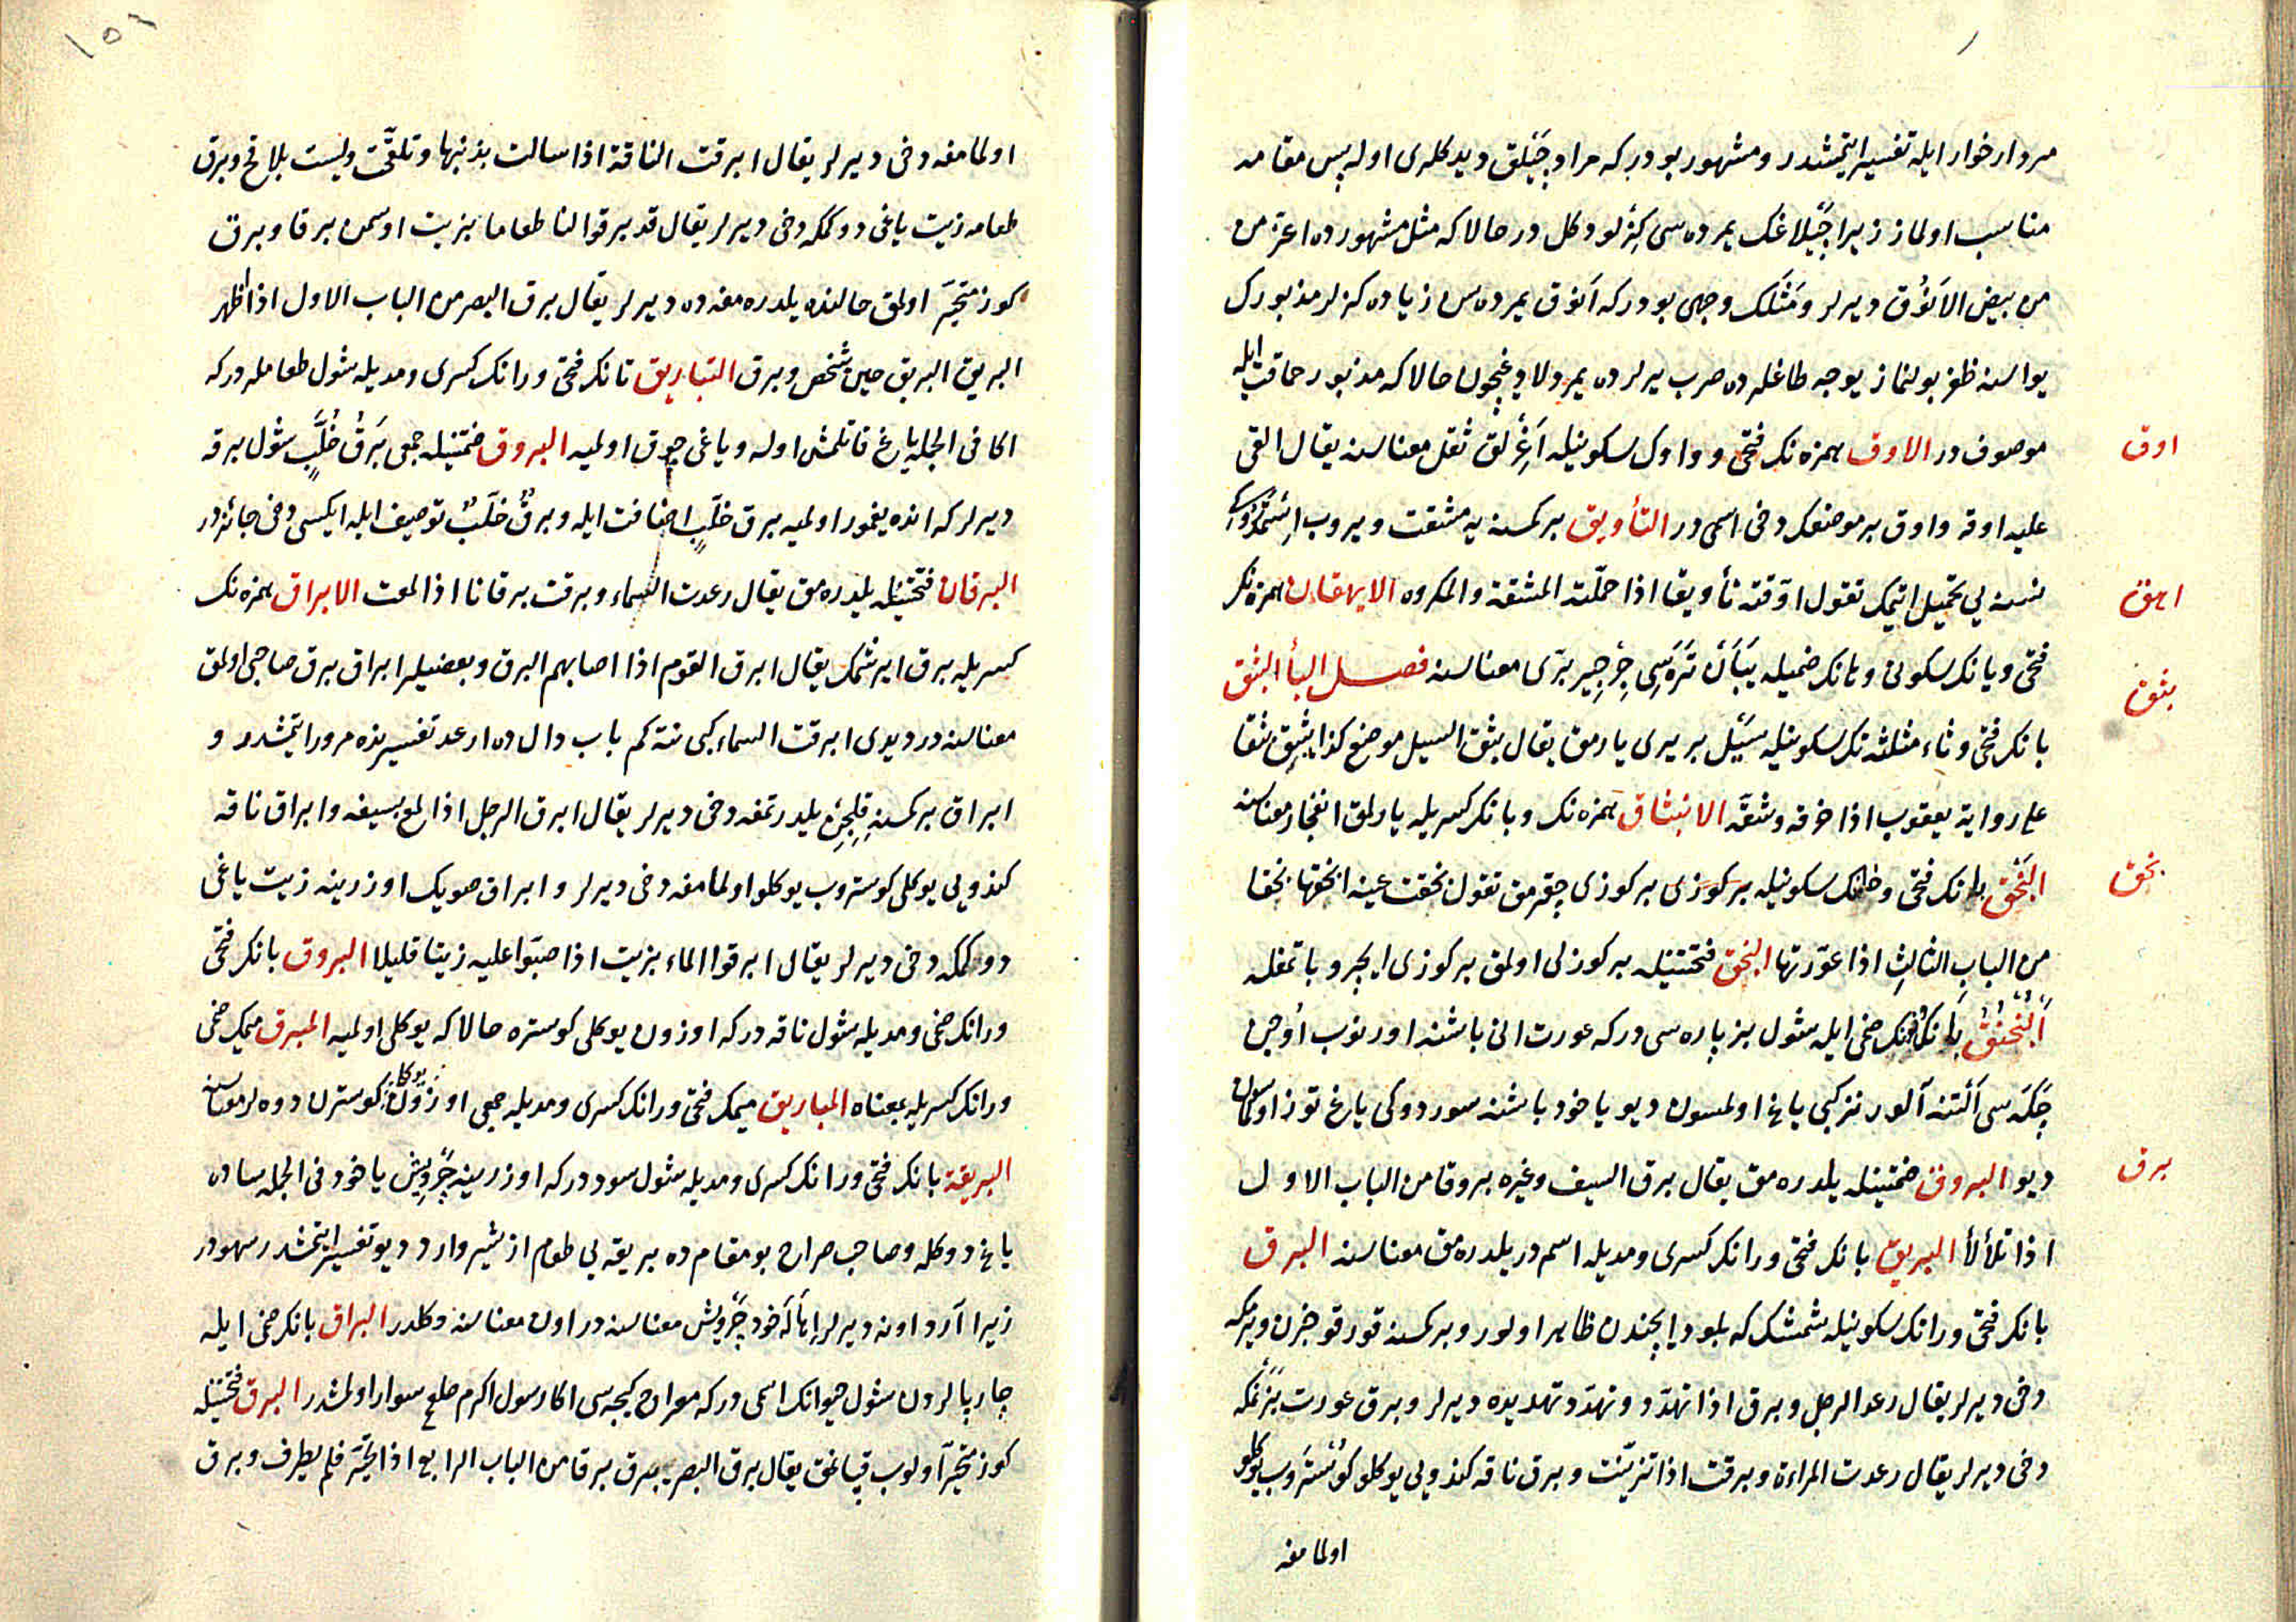 مردار خوار ايله تفسير ايتمشدر و مشهور بودركه مراد چَيْلَق ديدكلرى اوله پس مقامه
مناسب اولماز زيرا چَيْلاغك يمرده سى كزلو دكل در حالا كه مثل مشهورده اعز من
من بيض الاَنُوق ديرلر و مَثَلك وجهى بودركه اَنوق يمرده سن زياده كزلر مذبورك
يواسنه ظفر بولنماز يوجه طاغلرده صرب يرلرده يمردلادوغيچون حالا كه مذبور حماقت ايله
موصوف در الاوق همزه نك فتحى و واوك سكونيله اَغِرْلق ثقل معناسنه يقال القى
اوق
عليه اوقه و اوق بر موضعك دخى اسمى در التأويق بر كمسنه يه مشقت ويروب
نسنه يى تحميل ايتمك تقول اوّقته تأويقا اذا حمّلته المشقة والمكروه الايهقان همزه نك
اهق
فتحى و يانك سكونى و هانك ضميله يَبَان تَرَه سى جِرْجِير برّى معناسنه فصل البأ البثق
بثق
بانك فتحى و ثاء مثلثه نك سكونيله سَيْل بر يرى يارمق يقال بثق السيل موضع كذا يبثِق بثقا
على رواية يعقوب اذا خرقه و شقّه الانبثاق همزه نك و بانك كسريله يارلمق انفجار معناسنه
البَخْق بانك فتحى و خانك سكونيله بر كوزى بر كوزى چقرمق تقول بخقت عينه ابخقها بخقا
بخق
من الباب الثالثِ اذا عوّرتها البخق فتحتينله بر كوزلى اولمق بر كوزى ايچرو باتمغله
اَلبُخْنُق بانك نونك ضمى ايله شول بز پاره سى دركه عورت انى باشنه اورنوب اوُجن
چَكَه سى اَلتنه آلور تنركبى ياغ اولمسون ديو ياخود باشنه سوردوكى ياغ توز اولماسون
ديو البروق ضمتينله يلدره مق يقال برق السيف وغيره بروقا من الباب الاول
برق
اذا تلألأ البريق بانك فتحى و رانك كسرى و مديله اسم در يلدره مق معناسنه البرق
بانك فتحى و رانك سكونيله شمشك كه بلود ايچندن ظاهر اولور و بر كمسنه قورقوخزن ويرمكه
دخى ديرلر يقال رعد الرجل و برق اذا تهدّد و تهدّد تهديده ديرلر و برق عورت بَزَنْمكه
دخى ديرلر يقال رعدت المراءة و برقت اذا تزيّنت و برق ناقه كندويى يوكلو كوُسْتَروب يوكلو
اولمامغه
١٥٦
اولمامغه دخى ديرلر يقال ابرقت الناقة اذا سالت بذنبها و تلقّحت وليست بلاقح و برق
طعامه زيت ياغى دوكمكه دخى ديرلر يقال قد برقوا لنا طعاما بزيت او سمن برقا و برق
كوز متحيّر اولمق حالنده يلدره مغه ده ديرلر يقال برق البصر من الباب الاول اذا ظهر
البريق البريق حين شخص و برق التباريق تانك فتحى و رانك كسرى و مديله شول طعاملردركه
اكا فى الجمله ياغ قاتلمش اوله و ياغى چوق اولميه البروق ضمتينله جمعى بَرْقُ خُلَّبٍ شول برقه
ديرلر كه انده يغمور اولميه برق خلّبٍ اضافت ايله و برقٌ خلّبٌ توصيف ايله ايكسى دخى جائزدر
البرقان فتحتينله يلدره مق يقال رعدت السماء و برقت برقانا اذا لمعت الابراق همزه نك
كسريله برق ايرشمك يقال ابرق القوم اذا اصابهم البرق و بعضيلر ابراق برق صاحبى اولمق
معناسنه در ديدى ابرقت السماء كبى نته كم باب دال ده ارعد تفسيرنده مرور ايتمشدر و
ابراق بر كمسنه قلِجِن يلدرتمغه دخى ديرلر يقال ابرق الرجل اذا لمع بسيفه و ابراق ناقه
كندويى يوكلى كوستروب يوكلو اولمامغه دخى ديرلر و ابراق صويك اوزرينه زيت ياغى
دوكمكه دخى ديرلر يقال ابرقوا الماء بزيت اذا صبّوا عليه زيتا قليلا البروق بانك فتحى
و رانك ضمى و مديله شول ناقه دركه اوزون يوكلى كوستره حالا كه يوكلى اولميه المبرق ميمك ضمى
و رانك كسريله بمعناه المباريق ميمك فتحى و رانك كسرى و مديله جمعى اوزون يوكلو كوسترن دوه لر معناسنه
البريقة بانك فتحى و رانك كسرى و مديله شول سوددركه اوزرينه چَرْوِيش ياخود فى الجمله ساده
ياغ دوكله و صاحب صراح بو مقام ده بريقه يى طعام از شير و ارد ديو تفسير ايتمشدر سهودر
زيرا آرد اونه ديرلر اِهَالَه خود چَرْوِيش معناسنه در اون معناسنه دكلدر البراق بانك ضمى ايله
چارپالردن شول حيوانك اسمى دركه معراج كيجه سى اكا رسول اكرم صلعم سوار اولمشدر البرق فتحتينله
كوز متحيّر اولوب قپاغق يقال برق البصر يبرق برقا من الباب الرابع اذا تحيّر فلم يطرف و برق